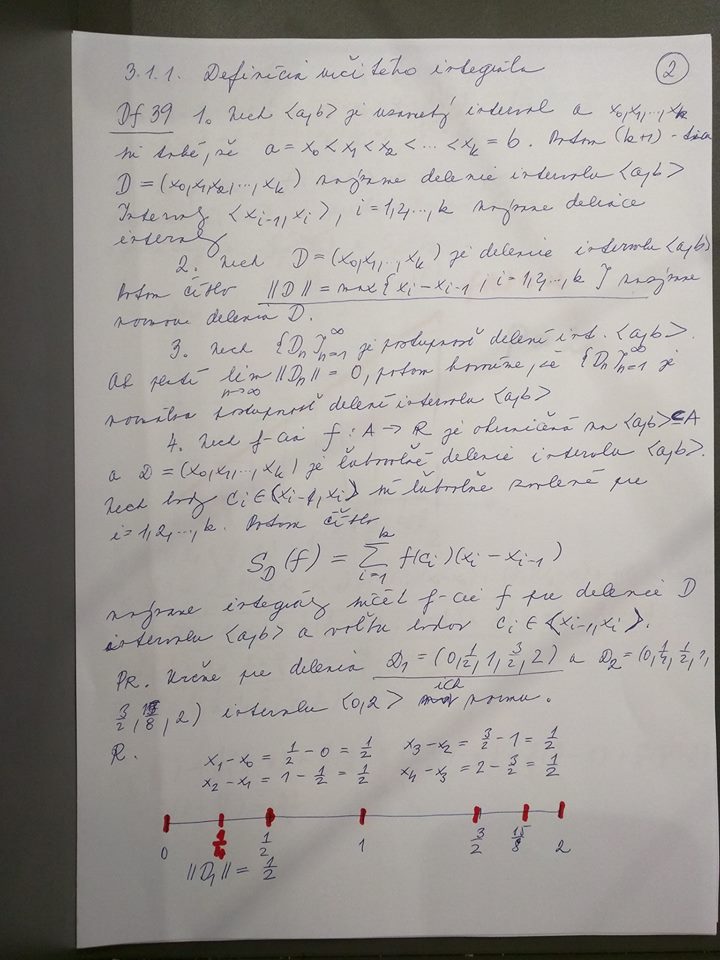 3.1.1. Definícia určitého integrálu
2
Df 39 1. Nech <a,b> je uzavretý interval a x₀,x₁,...,xₖ
sú také, že a = x₀ < x₁ < x₂ < ... < xₖ = b. Potom (k+1)-ticu
D = (x₀,x₁,x₂,...,xₖ) nazývame delenie intervalu <a,b>
Intervaly <xᵢ₋₁,xᵢ>, i=1,2,...,k nazývame deliace
intervaly
2. Nech D = (x₀,x₁,...,xₖ) je delenie intervalu <a,b>
Potom číslo ||D|| = max{xᵢ - xᵢ₋₁ ; i=1,2,...,k} nazývame
normou delenia D.
3. Nech {Dₙ}ₙ₌₁^∞ je postupnosť delení int. <a,b>.
Ak platí lim n→∞ ||Dₙ|| = 0, potom hovoríme, že {Dₙ}ₙ₌₁^∞ je
normálna postupnosť delení intervalu <a,b>
4. Nech f-cia f: A → R je ohraničená na <a,b> ⊆ A
a D = (x₀,x₁,...,xₖ) je ľubovoľné delenie intervalu <a,b>.
Nech body cᵢ ∈ <xᵢ₋₁,xᵢ> sú ľubovoľne zvolené pre
i=1,2,...,k. Potom číslo
S_D(f) = Σᵢ₌₁^k f(cᵢ)(xᵢ - xᵢ₋₁)
nazývame integrálny súčet f-cie f pre delenie D
intervalu <a,b> a voľbu bodov cᵢ ∈ <xᵢ₋₁,xᵢ>.
PR. Určme pre delenia D₁ = (0, 1/2, 1, 3/2, 2) a D₂ = (0, 1/4, 1/2, 1,
3/2, 15/8, 2) intervalu <0,2> ich normu.
R.
x₁-x₀ = 1/2 - 0 = 1/2 x₃-x₂ = 3/2 - 1 = 1/2
x₂-x₁ = 1 - 1/2 = 1/2 x₄-x₃ = 2 - 3/2 = 1/2
0 1/4 1/2 1 3/2 15/8 2
||D₁|| = 1/2